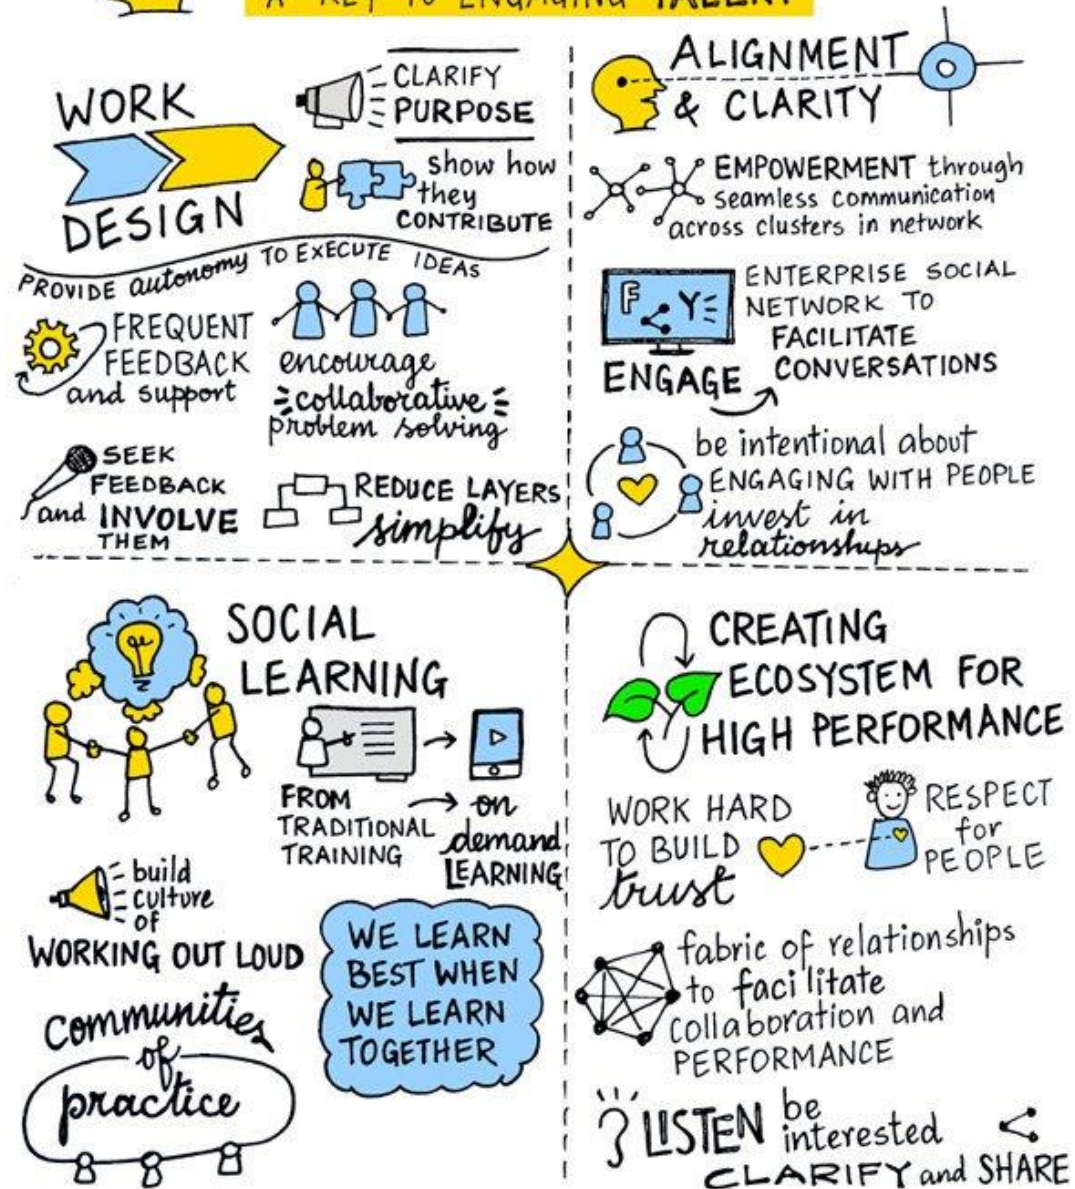 A KEY TO ENGAGING TALENT
WORK
DESIGN
CLARIFY
PURPOSE
show how
they
CONTRIBUTE
PROVIDE autonomy TO EXECUTE IDEAS
FREQUENT
FEEDBACK
and support
encourage
collaborative
problem solving
SEEK
FEEDBACK
and INVOLVE
THEM
REDUCE LAYERS
simplify
ALIGNMENT
& CLARITY
EMPOWERMENT through
seamless communication
across clusters in network
F Y
ENTERPRISE SOCIAL
NETWORK TO
FACILITATE
CONVERSATIONS
ENGAGE
be intentional about
ENGAGING WITH PEOPLE
invest in
relationships
SOCIAL
LEARNING
FROM
TRADITIONAL
TRAINING
on
demand
LEARNING
build
culture
of
WORKING OUT LOUD
communities
of
practice
WE LEARN
BEST WHEN
WE LEARN
TOGETHER
CREATING
ECOSYSTEM FOR
HIGH PERFORMANCE
WORK HARD
TO BUILD
trust
RESPECT
for
PEOPLE
fabric of relationships
to facilitate
collaboration and
PERFORMANCE
LISTEN be
interested
CLARIFY and SHARE